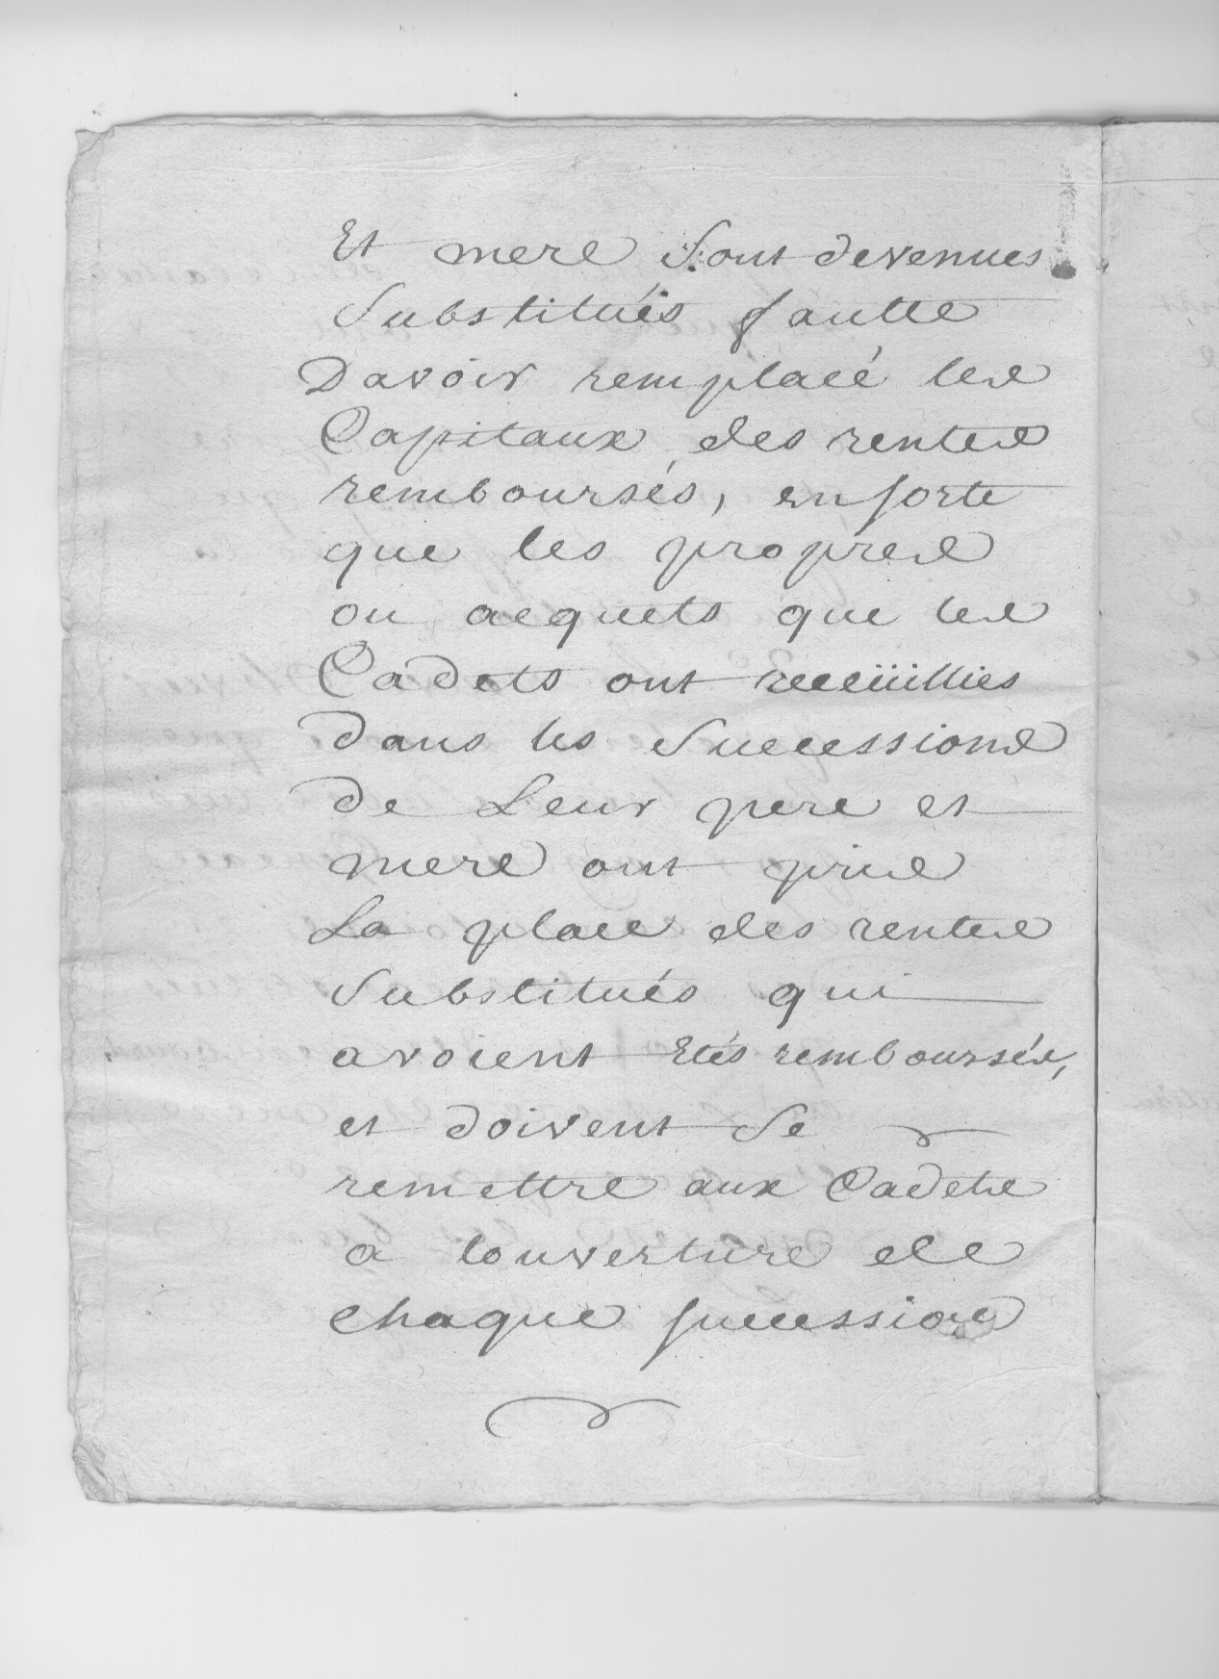 Et mere Sont devenues
Substitués fautte
Davoir remplacé les
Capitaux des rentes
remboursés, ensorte
que les propres
ou acquets que les
Cadets ont receüillies
dans les Successions
de Leur pere et
mere ont pris
La place des rentes
Substitués qui
avoient Etés remboursés,
et doivent Se
remettre aux Cadets
a louverture de
chaque succession